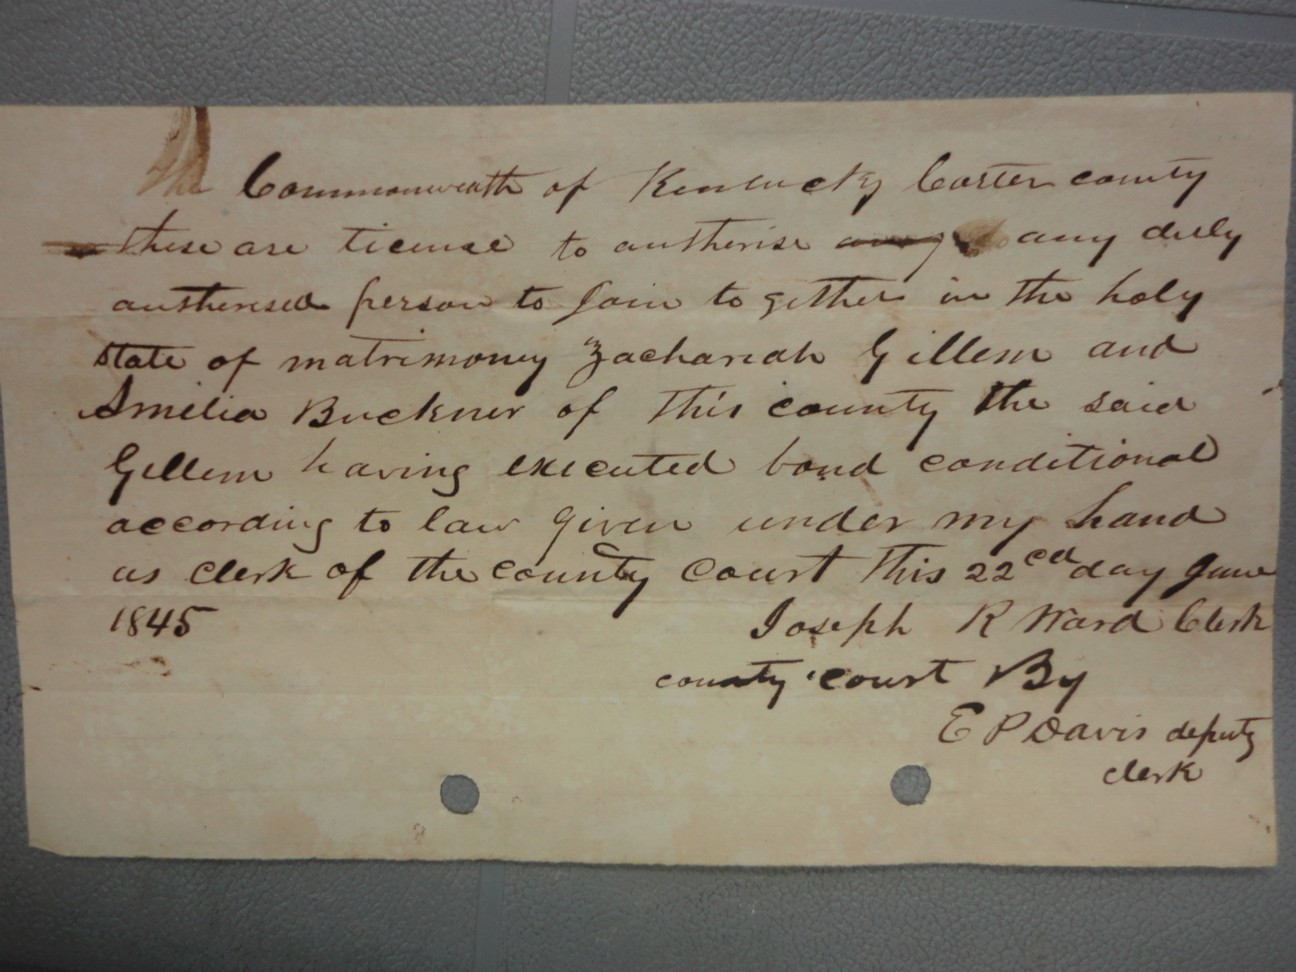 The Commonwealth of Kentucky Carter county
these are license to autherise any any duly
autherised person to Join to gether in the holy
state of matrimony Zachariah Gillem and
Amelia Buckner of this county the said
Gillem having executed bond conditional
according to law given under my hand
as clerk of the county court this 22cd day June
1845
Joseph R Ward Clerk
county court By
E P Davis deputy
clerk